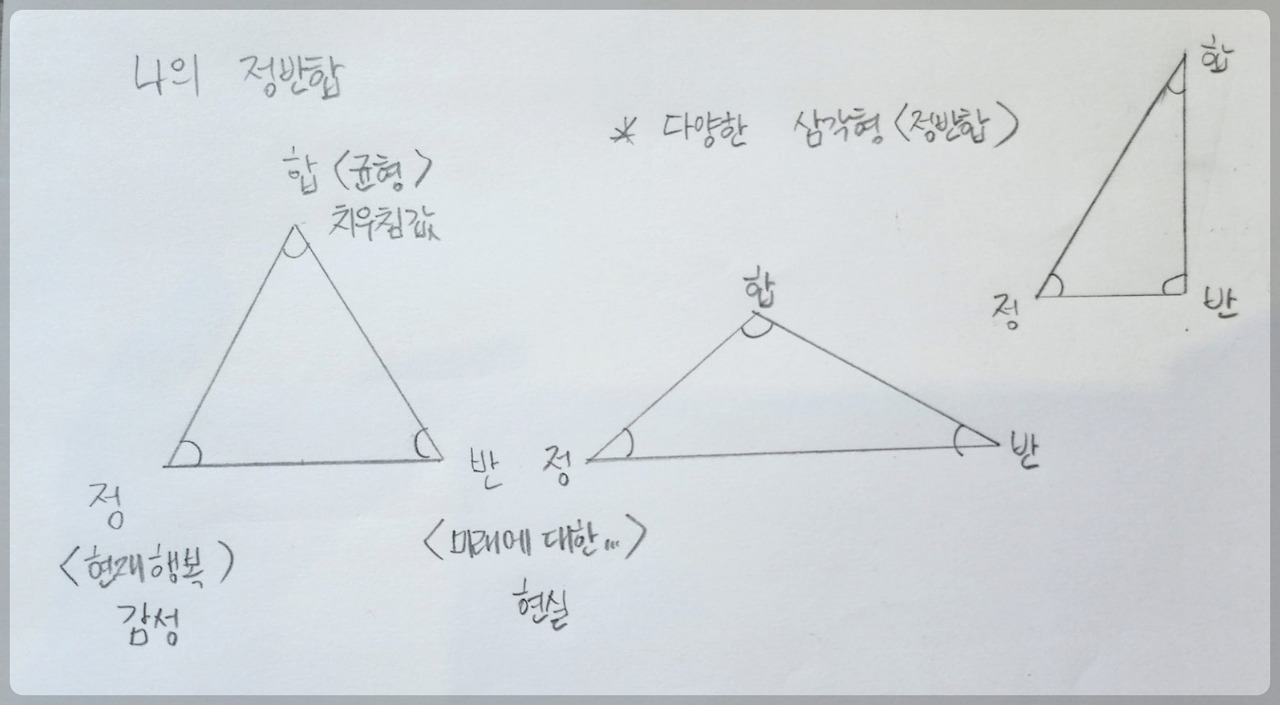 나의 정반합
합 <균형>
치우침값
정
<현재행복>
감성
반
<미래에 대한...>
현실
* 다양한 삼각형 <정반합>
합
정
반
합
정
반